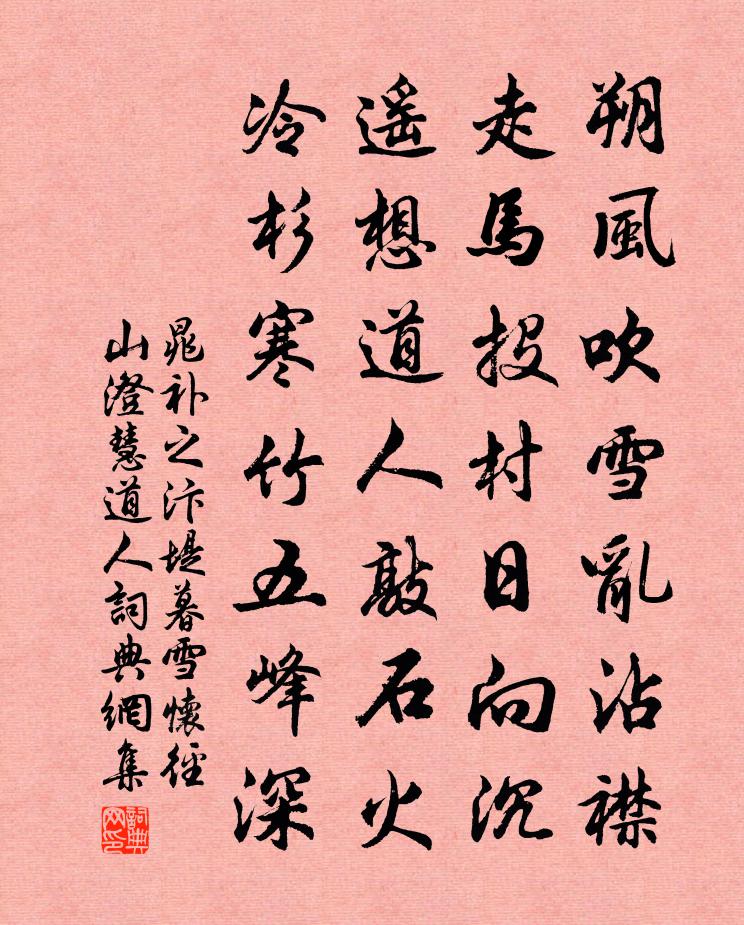 朔風吹雪亂沾襟
走馬投村日向沉
遥想道人敲石火
冷杉寒竹五峰深
晁补之汴堤暮雪懷径
山澄慧道人詞典網集
詞典
网印